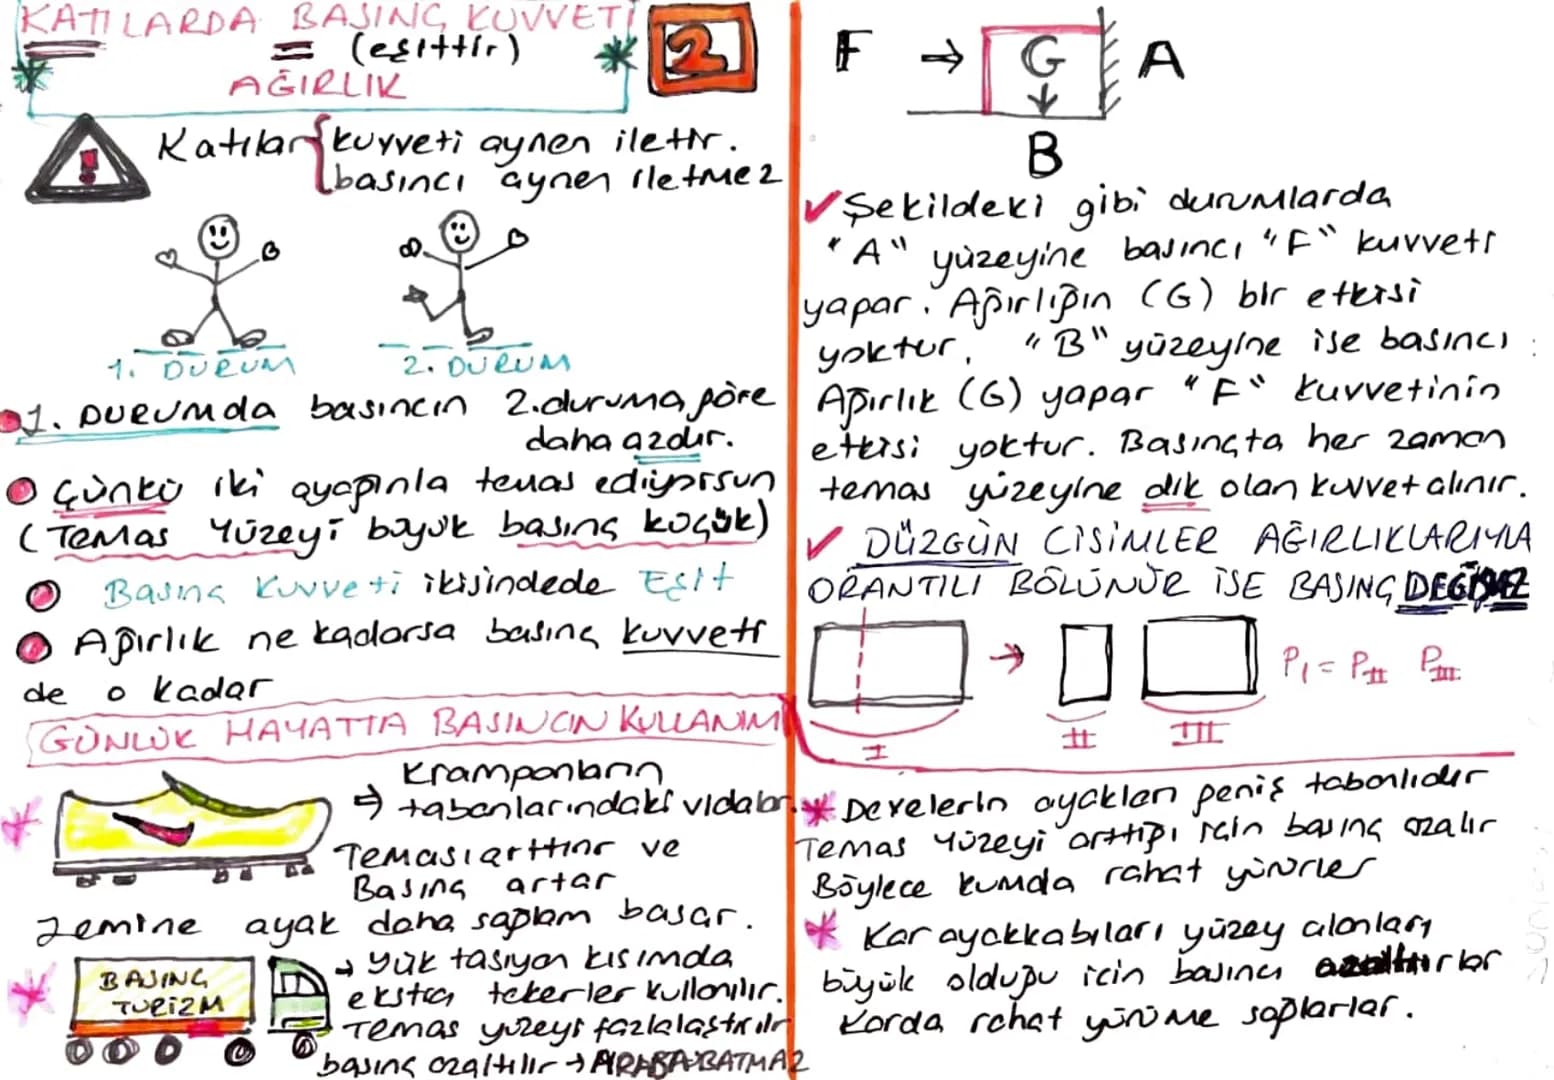 KATILARDA BASINÇ KUVVETİ
= (eşittir)
AĞIRLIK
2
!
Katılar kuvveti aynen iletir.
basıncı aynen iletmez
1. DURUM
2. DURUM
1. DURUMda basıncın 2.duruma göre
daha azdır.
Çünkü iki ayağınla temas ediyorsun
(Temas Yüzeyi büyük basınç küçük)
Basınç Kuvveti ikisindede Eşit
Ağırlık ne kadarsa basınç kuvveti
de o kadar
GÜNLÜK HAYATTA BASINCIN KULLANIMI
Kramponların
→ tabanlarındaki vidalar
Teması arttırır ve
Basınç artar
zemine ayak daha sağlam basar.
BASINÇ
TURİZM
→ yük taşıyan kısımda
ekstra tekerler kullanılır.
Temas yüzeyi fazlalaştırılır
basınç azaltılır → ARABA BATMAZ
F → G A
B
✓ Şekildeki gibi durumlarda
"A" yüzeyine basıncı "F" kuvveti
yapar. Ağırlığın (G) bir etkisi
yoktur. "B" yüzeyine ise basıncı :
Ağırlık (G) yapar "F" kuvvetinin
etkisi yoktur. Basınçta her zaman
temas yüzeyine dik olan kuvvet alınır.
✓ DÜZGÜN CİSİMLER AĞIRLIKLARIYLA
ORANTILI BÖLÜNÜR İSE BASINÇ DEĞİŞMEZ
→ P_I = P_II P_III
I II III
* Develerin ayakları geniş tabanlıdır
Temas Yüzeyi arttığı için basınç azalır
Böylece kumda rahat yürürler
* Kar ayakkabıları yüzey alanları
büyük olduğu için basıncı azaltırlar
Karda rahat yürüme sağlarlar.